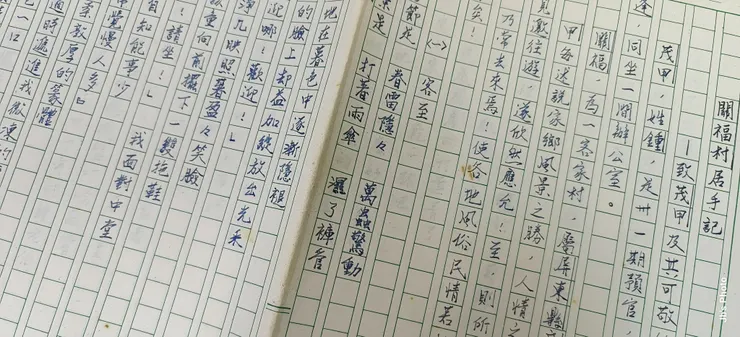 關福村居手記
—致茂甲及其可敬
茂甲，姓鍾，是卅一期預官，
同坐一間辦公室。
關福為一客家村，屬屏東縣
甲每述說家鄉風景之勝，人情之
邀往遊，遂欣然應允！至，則所
矣！乃常去來焉！使各地風俗民情若
㈠客至
節是春雷隱々萬蟲驚動
打着雨傘濕了褲管
地在暮色中逐漸隱褪
的臉上却益加綻放出光采
迎哪！歡迎！」
几映照著盈々笑臉
重向前擺下一雙拖鞋
！請坐！」我面對中堂
知能事少
營慢人多
敦厚的篆體
時遞進我
一口